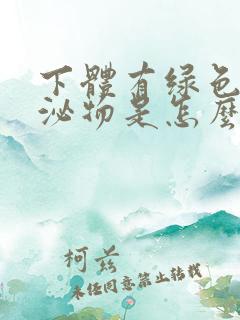 下體有綠色
泌物是怎麼
柯兹
未任同意禁止转载